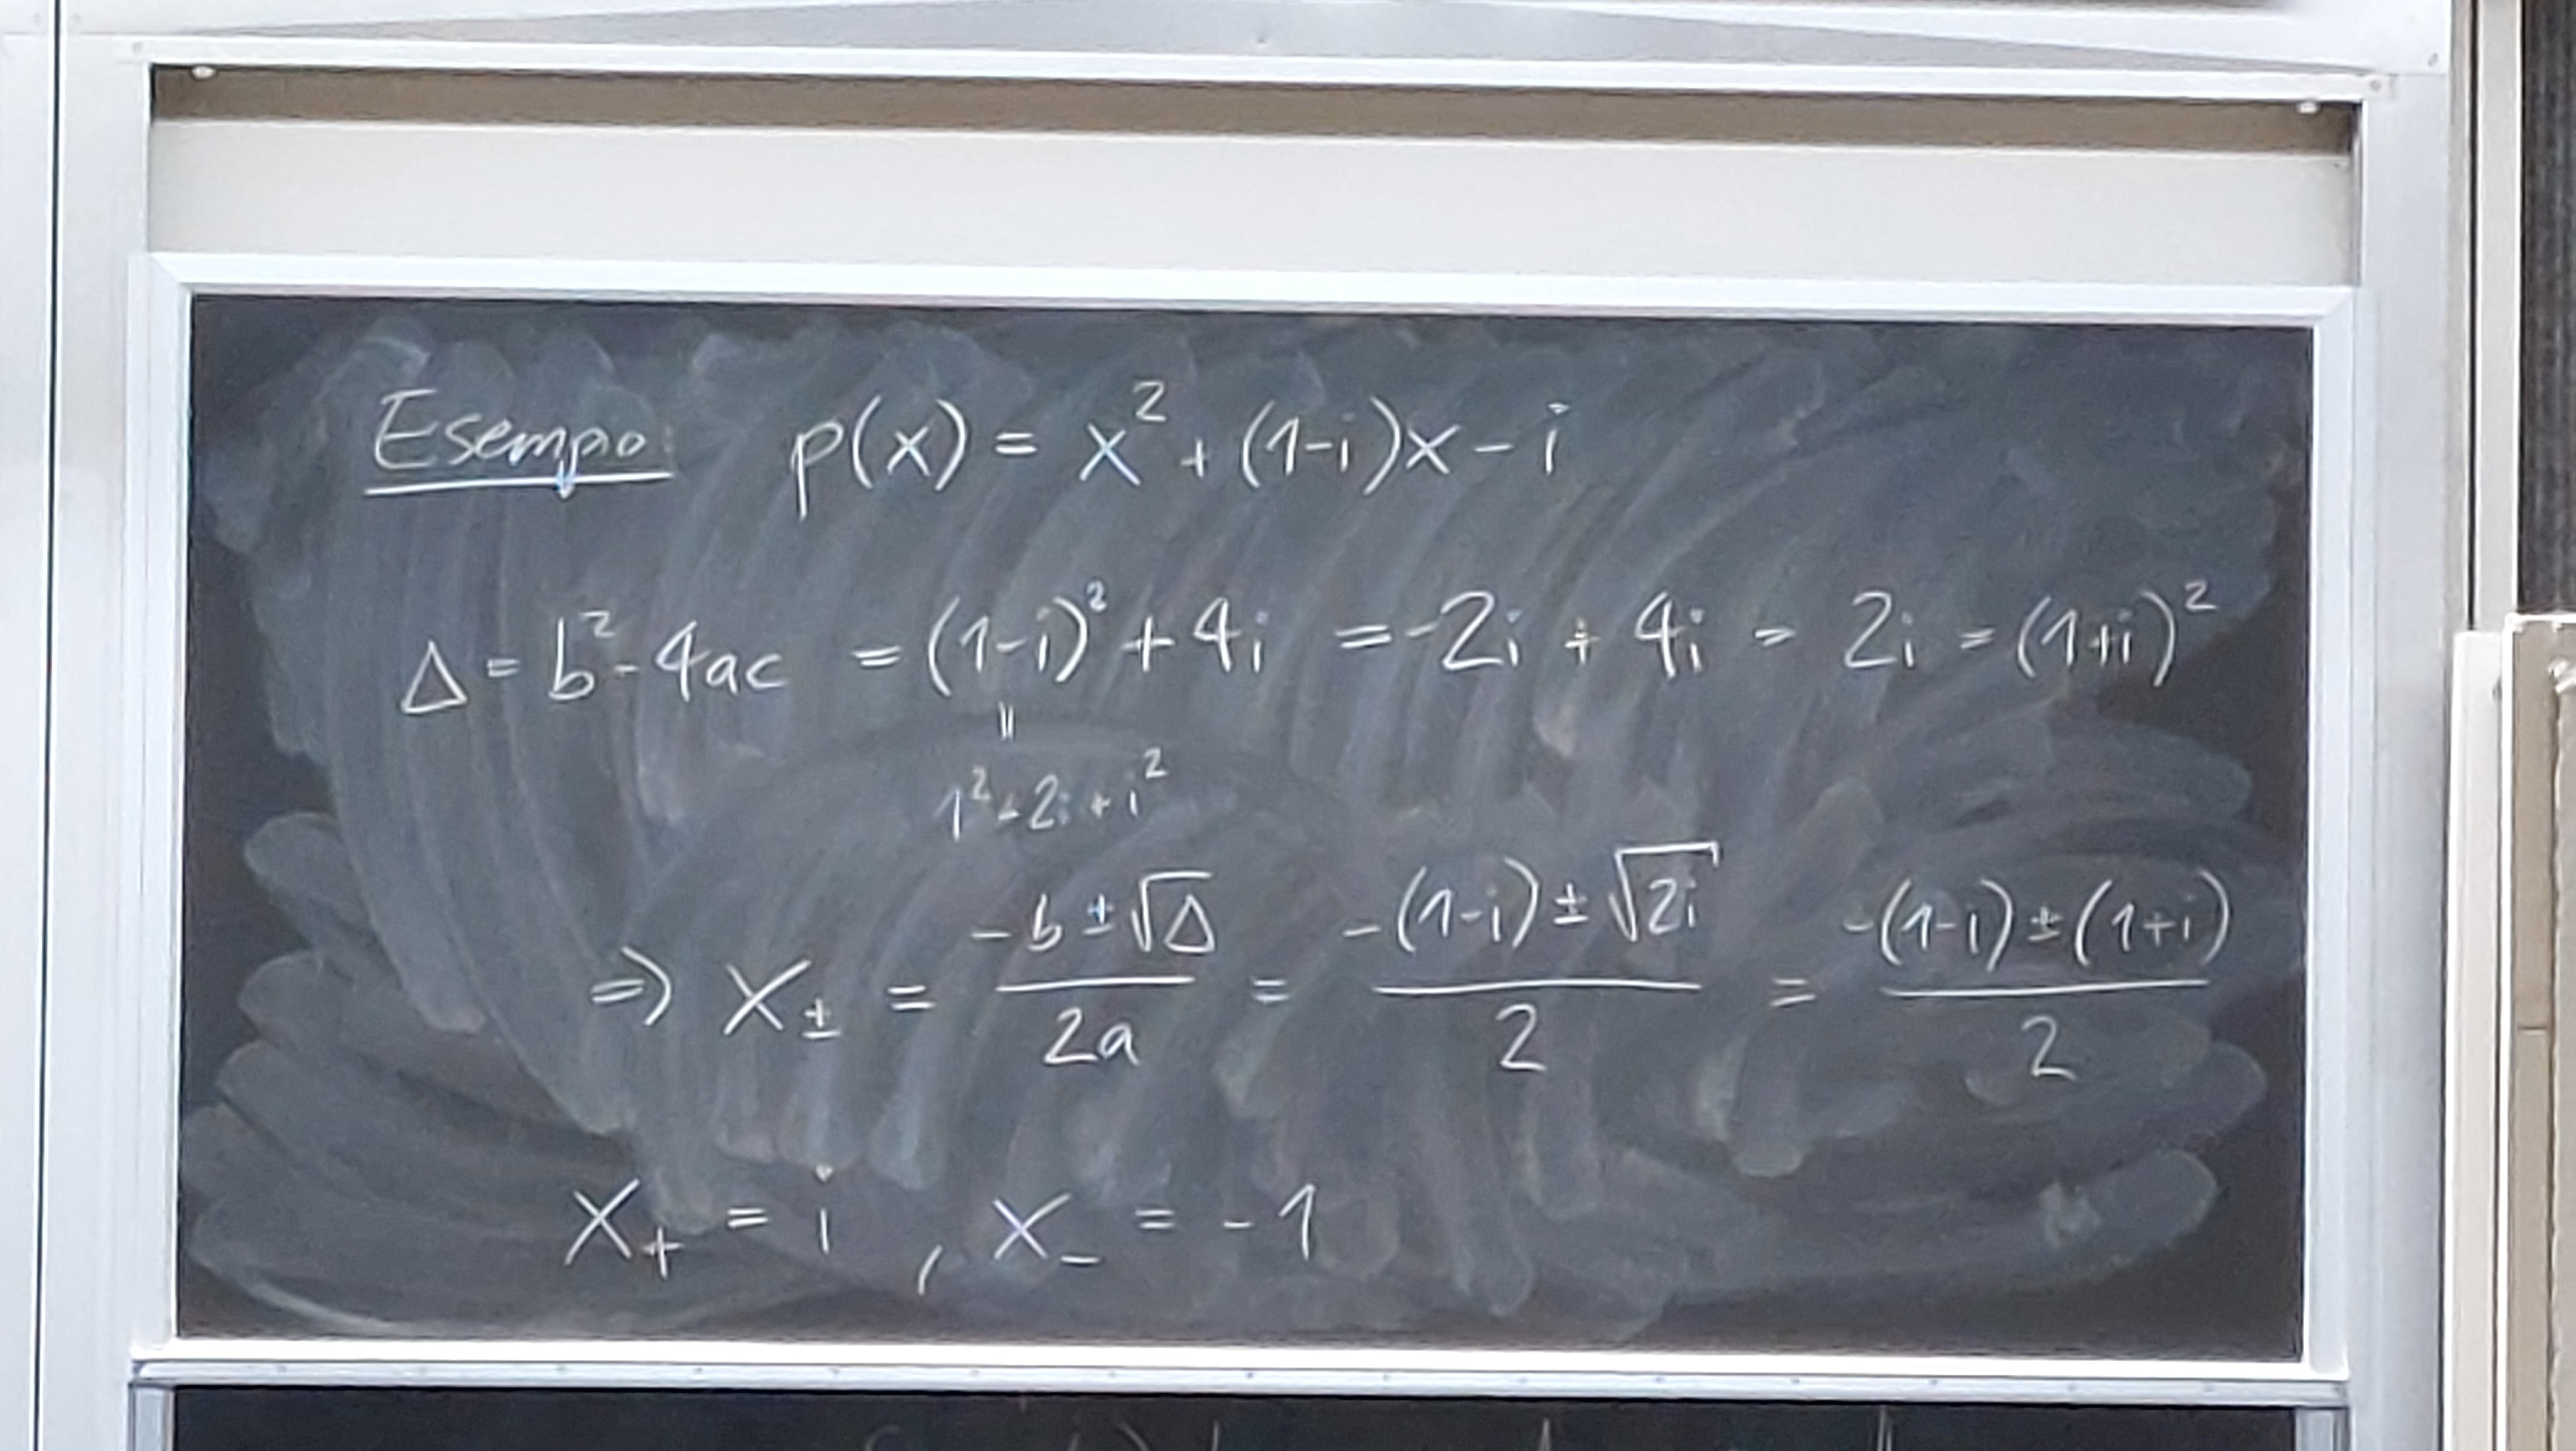 Esempio p(x) = x² + (1-i)x - i
Δ = b² - 4ac = (1-i)² + 4i = -2i + 4i = 2i = (1+i)²
||
1² - 2i + i²
⇒ x± = (-b ± √Δ)/(2a) = (-(1-i) ± √(2i))/2 = (-(1-i) ± (1+i))/2
x₊ = i , x₋ = -1